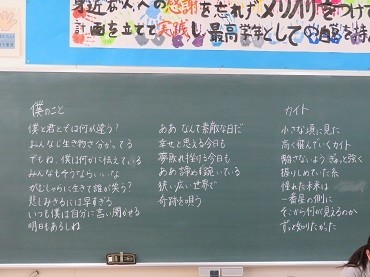 身近な人への感謝を忘れずメリハリをつけて
計画を立てて実践し最高学年としての自覚を持
僕のこと
僕と君とでは何が違う?
おんなじ生き物さ分かってる
でもね、僕は何かに怯えている
みんなもそうならいいな
がむしゃらに生きて誰が笑う?
悲しみきるには早すぎる
いつも僕は自分に言い聞かせる
明日もあるしね
ああ なんて素敵な日だ
幸せと思える今日も
夢敗れ挫ける今日も
ああ 諦めず足掻いている
狭い広い世界で
奇跡を唄う
カイト
小さな頃に見た
高く飛んでいくカイト
離さないよう ぎゅっと強く
握りしめていた糸
憧れた未来は
一番星の側に
そこから何が見えるのか
ずっと知りたかった